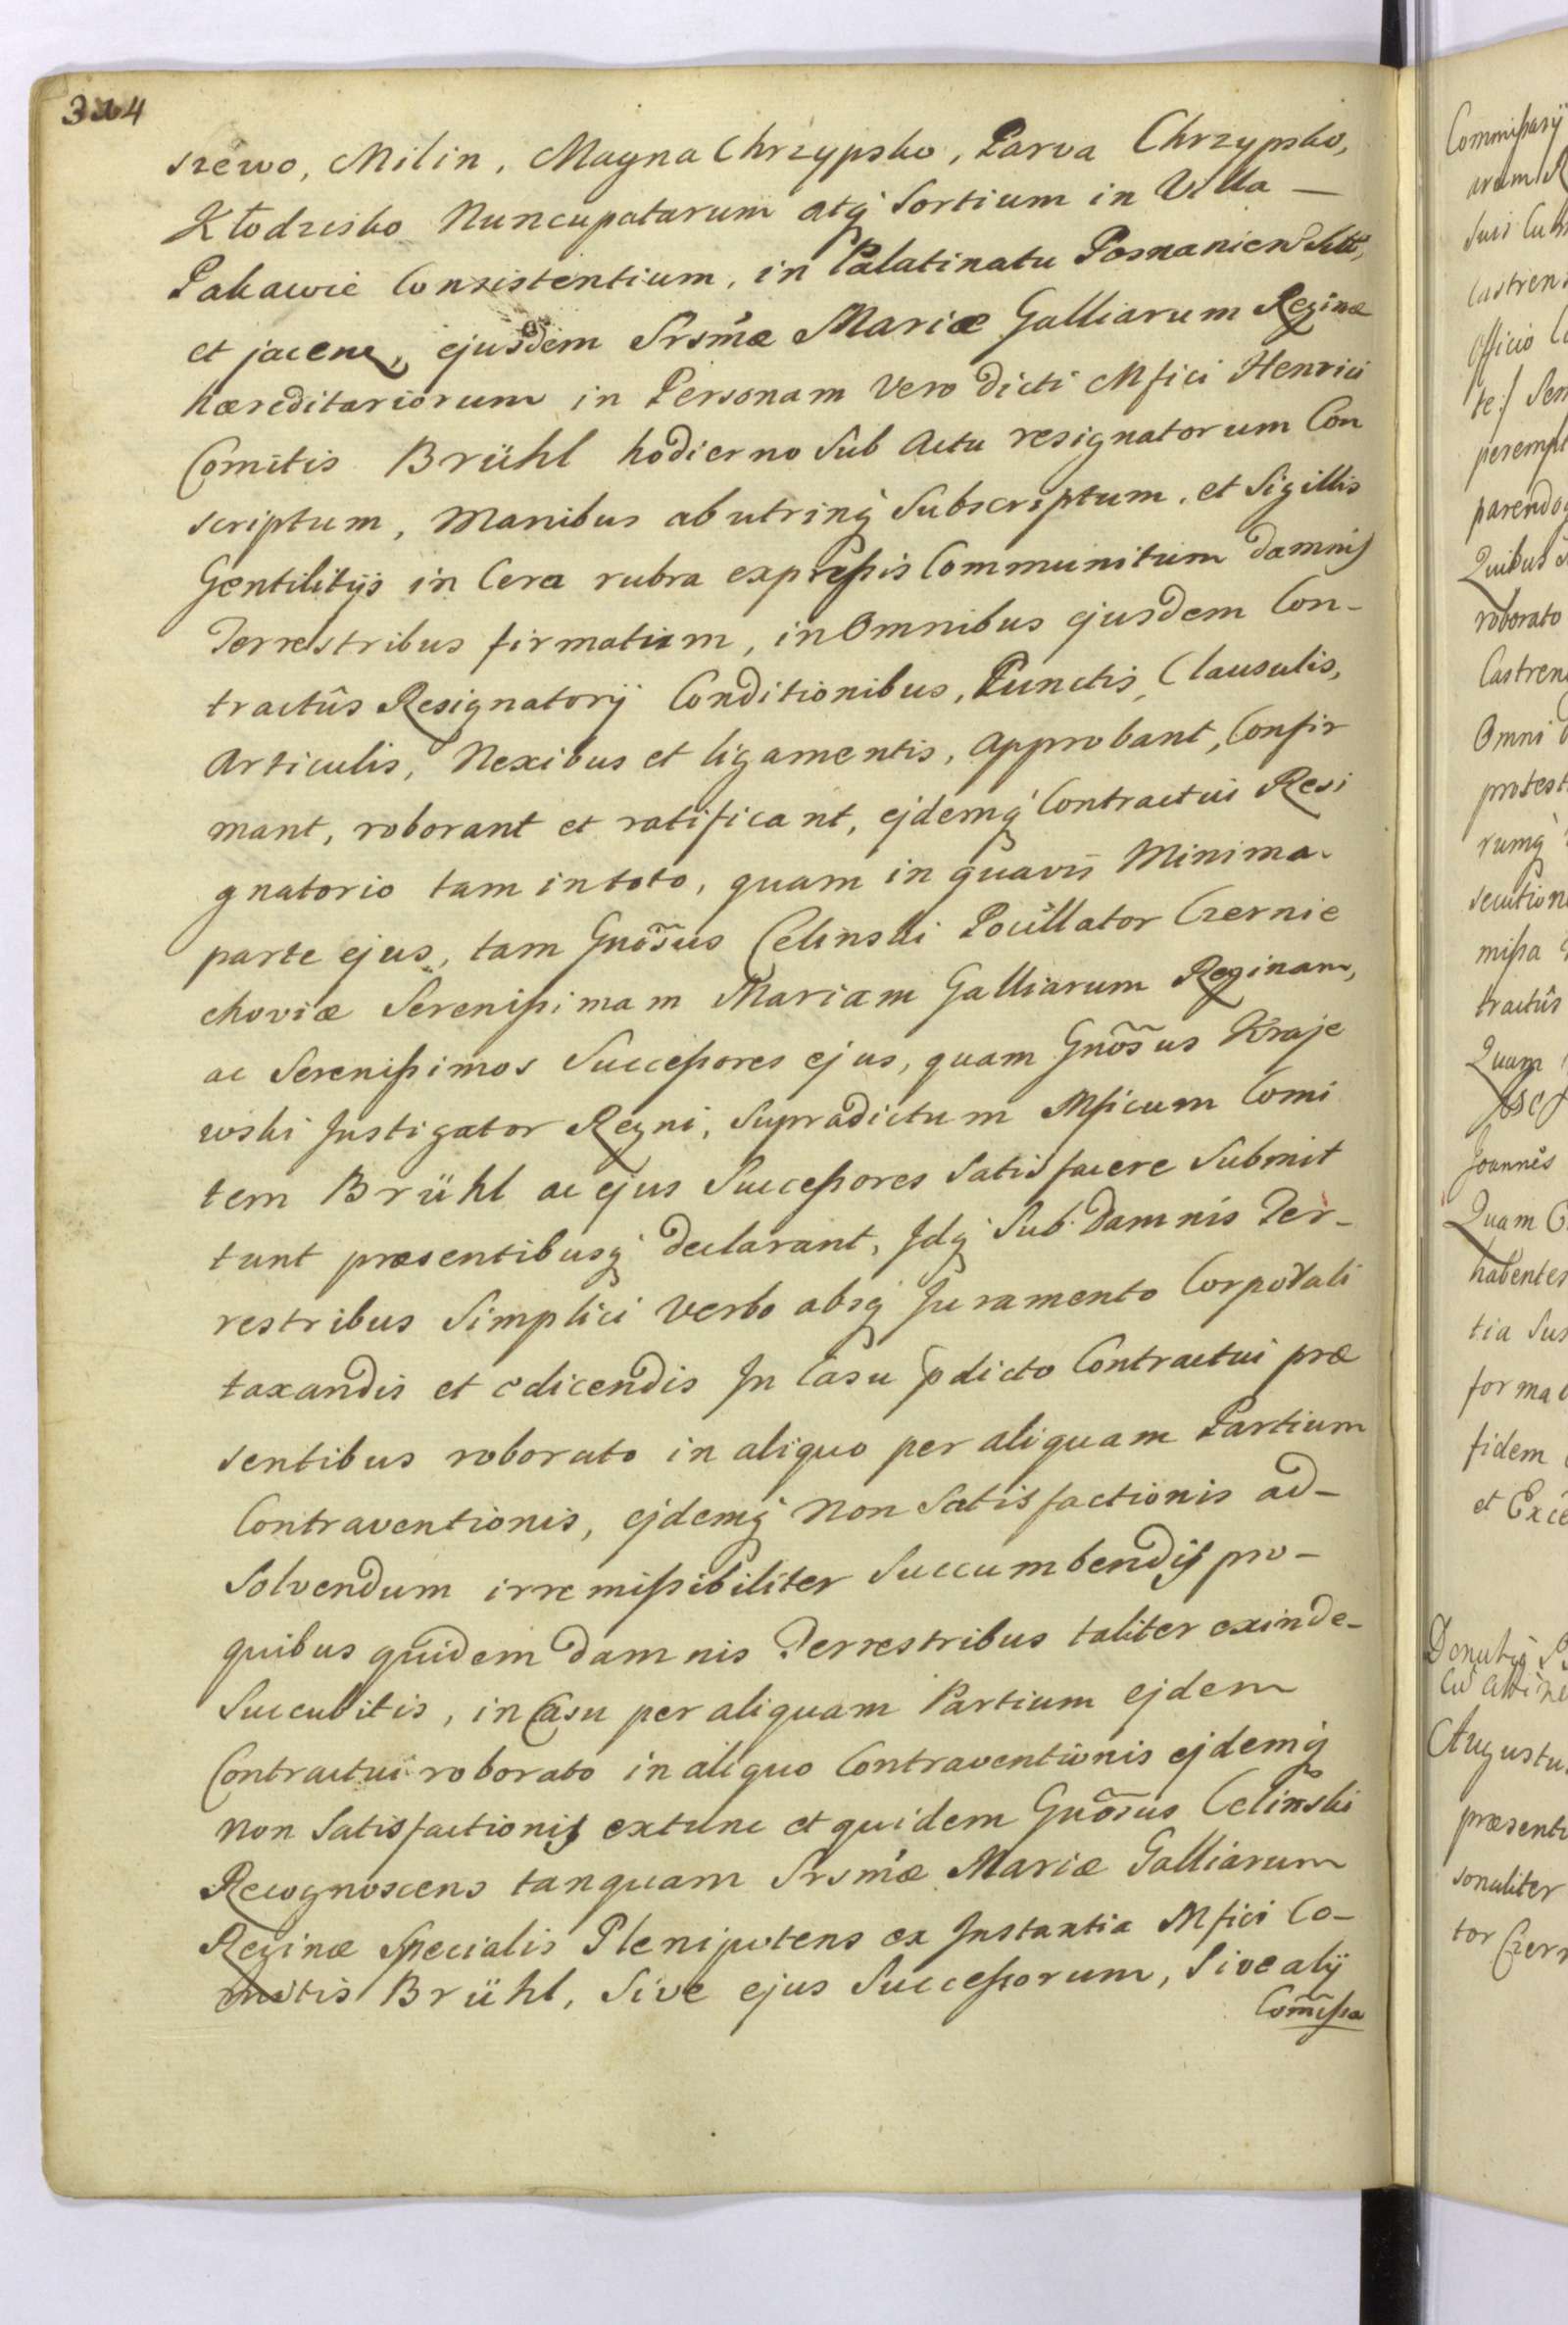 324
szewo, Milin, Magna Chrzypsko, Parva Chrzypsko,
Kłodzisko Nuncupatarum atq; Sortium in Villa —
Pakawie Consistentium, in Palatinatu Posnanien
et jacen, ejusdem Srsmæ Mariæ Galliarum Reginæ
hæreditariorum in Personam Vero dicti Mfici Henrici
Comitis Brühl hodierno Sub Actu resignatorum Con
scriptum, Manibus ab utrinq; Subscriptum, et Sigillis
Gentilitijs in Cera rubra expreßis Communitum damnis
Terrestribus firmatum, in Omnibus ejusdem Con-
tractûs Resignatorij Conditionibus, Punctis, Clausulis,
Articulis, Nexibus et ligamentis, Approbant, Confir
mant, roborant et ratificant, ejdemq; Contractui Resi
gnatorio tam in toto, quam in quavis Minima
parte ejus, tam Gnosus Celinski Pocillator Czernie
choviæ Serenißimam Mariam Galliarum Reginam,
ac Serenißimos Succeßores ejus, quam Gnõsus Kraje
wski Justigator Regni, Supradictum Mficum Comi
tem Brühl ac ejus Succeßores Satisfacere Submit
tunt præsentibusq; declarant, Jdq; Sub Damnis Ter-
restribus Simplici Verbo absq; Juramento Corporali
taxandis et edicendis Jn Casu pdicto Contractui præ
sentibus roborato in aliquo per aliquam Partium
Contraventionis, ejdemq; Non Satisfactionis ad-
Solvendum irremißibiliter Succumbendis pro-
quibus quidem Damnis Terrestribus taliter exinde-
Succubitis, in Casu per aliquam Partium ejdem
Contractui roborato in aliquo Contraventionis ejdemq;
non Satisfactionis extunc et quidem Gnõsus Celinski
Recognoscens tanquam Srsmæ Mariæ Galliarum
Reginæ Specialis Plenipotens ex Jnstantia Mfici Co-
mitis Brühl, Sive ejus Succeßorum, Sive alij
Com̃ißa
Commißarij
Suis
Castren
Officio
te:/
perempt
parendo
Quibus
roborato
Castren
Omni
protest
rumq;
secution
mißa
tractûs
Quam
Joannes
Quam
habentes
tia Sus
forma
fidem
et
Donatio
Augustu
præsenti
sonaliter
tor Czer